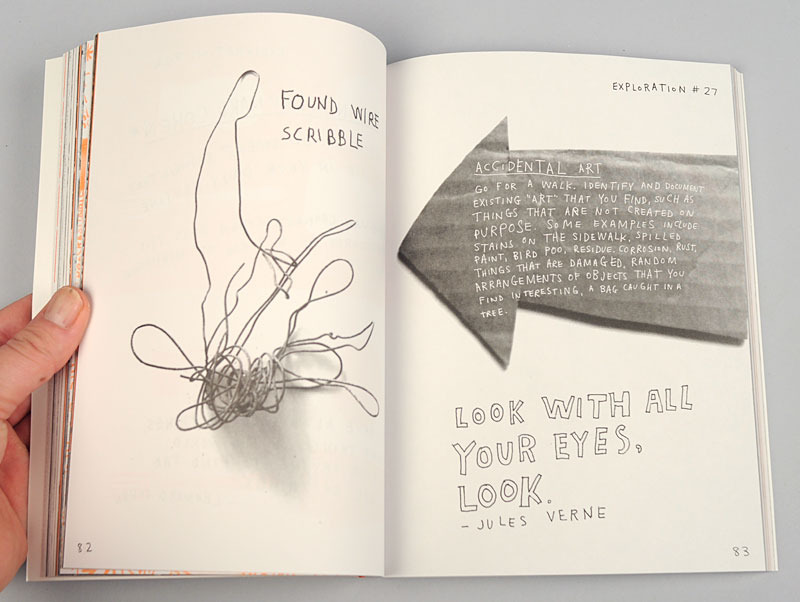 FOUND WIRE
SCRIBBLE
82
EXPLORATION #27
ACCIDENTAL ART
GO FOR A WALK. IDENTIFY AND DOCUMENT
EXISTING "ART" THAT YOU FIND, SUCH AS
THINGS THAT ARE NOT CREATED ON
PURPOSE. SOME EXAMPLES INCLUDE
STAINS ON THE SIDEWALK, SPILLED
PAINT, BIRD POO, RESIDUE. CORROSION, RUST,
THINGS THAT ARE DAMAGED, RANDOM
ARRANGEMENTS OF OBJECTS THAT YOU
FIND INTERESTING, A BAG CAUGHT IN A
TREE.
LOOK WITH ALL
YOUR EYES,
LOOK.
– JULES VERNE
83